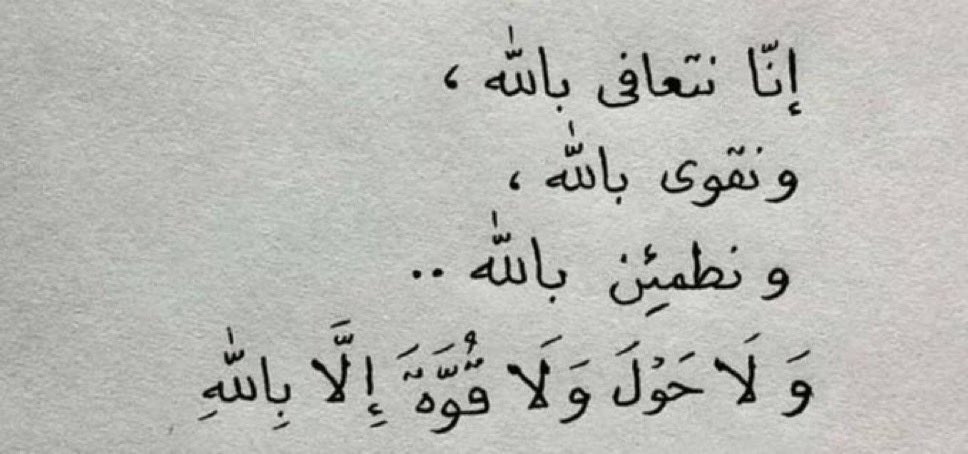 إنّا نتعافى بالله ،
و نقوى بالله ،
و نطمئِن بالله ..
وَ لَا حَوْلَ وَلَا قُوَّةَ إِلَّا بِاللهِ